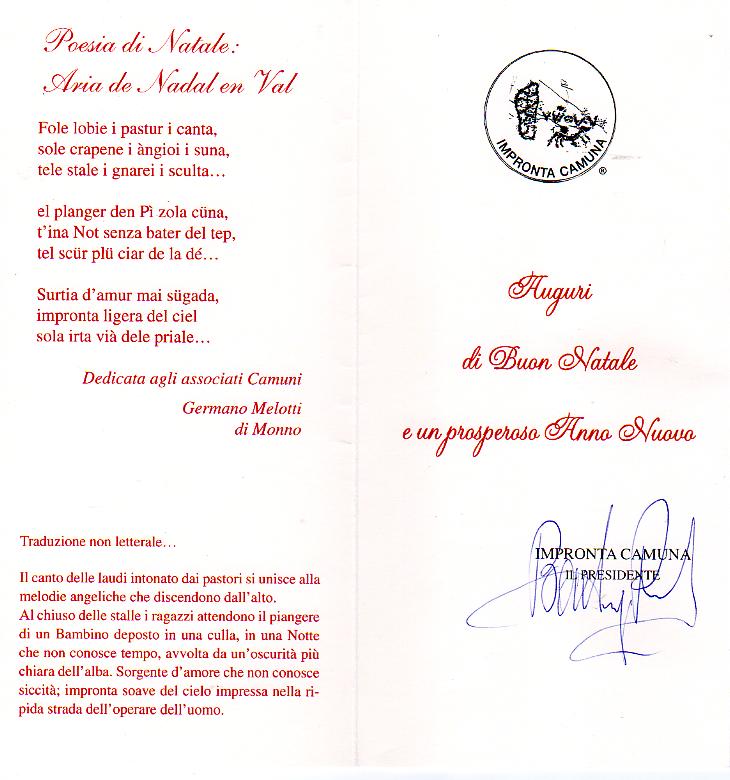 Poesia di Natale:
Aria de Nadal en Val
Fole lobie i pastur i canta,
sole crapene i àngioi i suna,
tele stale i gnarei i sculta…
el planger den Pì zola cüna,
t'ina Not senza bater del tep,
tel scür plü ciar de la dé…
Surtia d'amur mai sügada,
impronta ligera del ciel
sola irta vià dele priale…
Dedicata agli associati Camuni
Germano Melotti
di Monno
Traduzione non letterale…
Il canto delle laudi intonato dai pastori si unisce alla
melodie angeliche che discendono dall'alto.
Al chiuso delle stalle i ragazzi attendono il piangere
di un Bambino deposto in una culla, in una Notte
che non conosce tempo, avvolta da un'oscurità più
chiara dell'alba. Sorgente d'amore che non conosce
siccità; impronta soave del cielo impressa nella ri-
pida strada dell'operare dell'uomo.
IMPRONTA CAMUNA
®
Auguri
di Buon Natale
e un prosperoso Anno Nuovo
IMPRONTA CAMUNA
IL PRESIDENTE